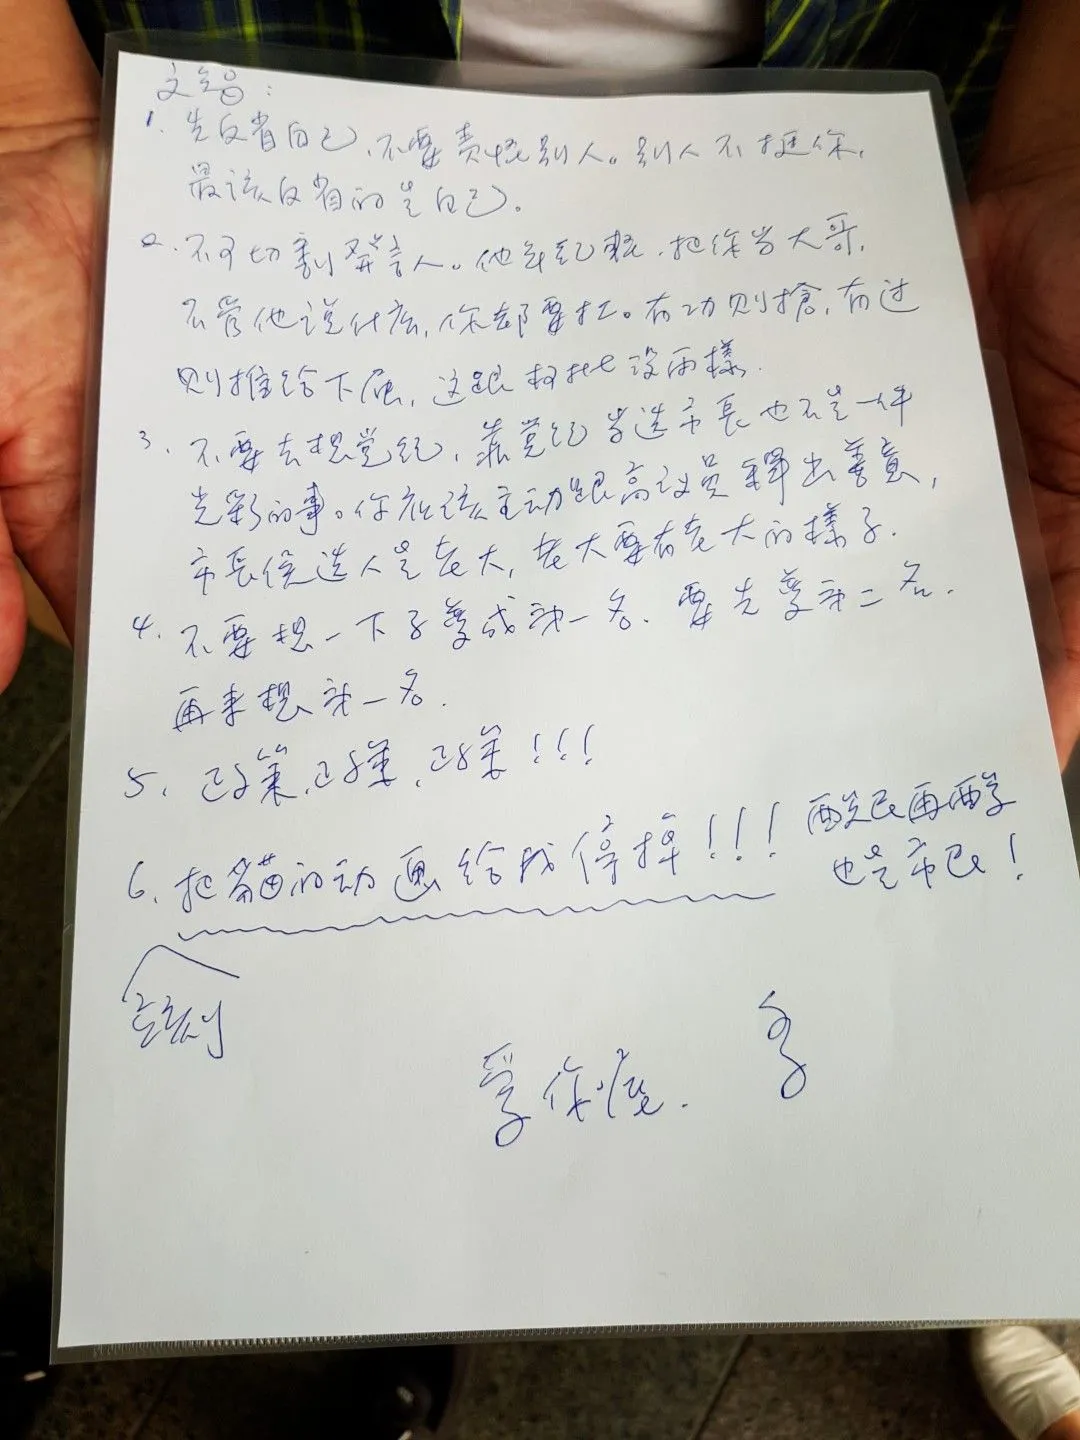 文多:
1. 先反省自己,不要責怪別人。別人不挺你,
最該反省的是自己。
2. 不可切割發言人。他年紀輕,把你当大哥,
不管他说什么,你都要扛。有功则搶,有过
则推给下屬,这跟柯P没兩樣.
3. 不要去想党纪,靠党纪当选市長也不是一件
光彩的事。你应该主动跟高议员釋出善意,
市長候选人是老大,老大要有老大的樣子.
4. 不要想一下子變成第一名.要先變第二名.
再来想第一名.
5. 政策,政策,政策!!!
6. 把貓的动画给我停掉!!! 酸民再酸
也是市民!
立刻
愛你